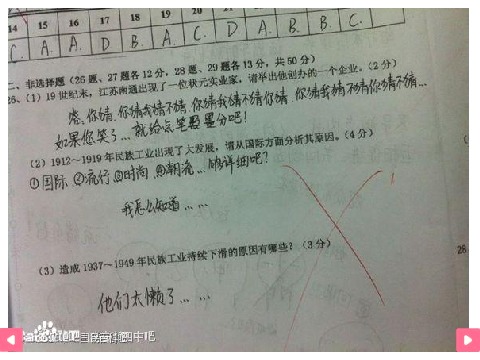 14 15 16 17 18 19 20 21 22 23 24
C. A. A. D. B. A. C. D A. B. B. C.
二、非选择题（26题、27题各12分，28题、29题各13分，共50分）
26、（1）19世纪末，江苏南通出现了一位状元实业家，请举出他创办的一个企业。（2分）
嗯,你猜.你猜我猜不猜.你猜我猜不猜你猜.你猜我猜不猜你猜不猜...
如果您笑了...就给点笔墨分吧！
（2）1912～1919年民族工业出现了大发展，请从国际方面分析其原因。（4分）
①国际 ②流行 ③时尚 ④潮流...够详细吧？
我怎么知道......
（3）造成1937～1949年民族工业持续下滑的原因有哪些？（3分）
26
他们太懒了......
Bai 百科